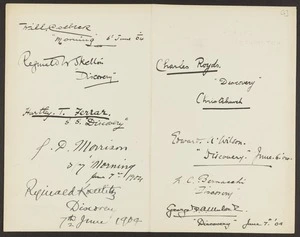 "Morning" 6 June 04
Reginald W Skelton
"Discovery"
Hartley T. Ferrar
S.S. "Discovery"
J. D. Morrison
S Y "Morning"
June 7th/1904
Reginald Koettlitz
Discovery
7th June 1904
Charles Royds.
"Discovery"
Christchurch
Edward A. Wilson.
"Discovery". June. 6. 04.
L. C. Bernacchi
Discovery
George
"Discovery" June 7. '04